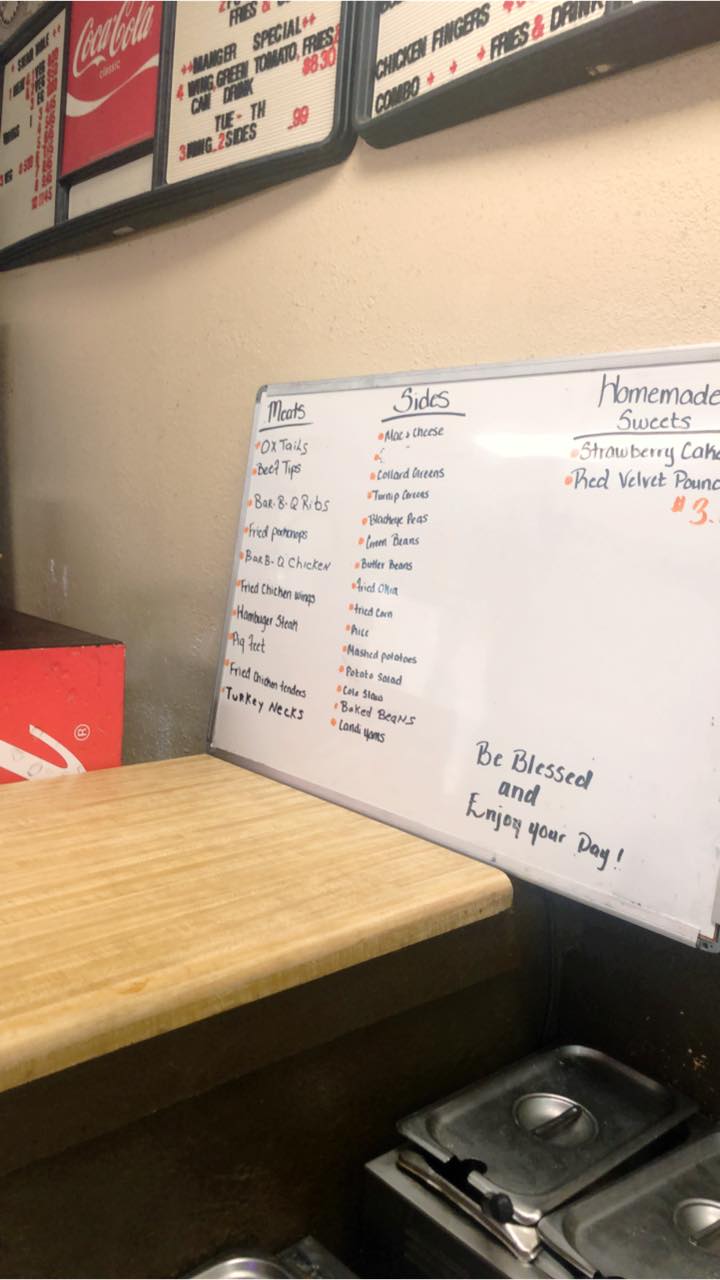 Coca-Cola
classic
FRIES &
++MANGER SPECIAL++
4 WING,GREEN TOMATO, FRIES &
CAN DRINK $8.30
TUE - TH
3WING..2SIDES .99
CHICKEN FINGERS
COMBO + + + FRIES & DRINK
Meats
OX Tails
Beef Tips
Bar-B-Q Ribs
Fried porkchops
Bar B-Q Chicken
Fried Chicken wings
Hambuger Steak
Pig feet
Fried Chicken tenders
Turkey Necks
Sides
Mac & Cheese
Collard Greens
Turnip Greens
Blackeye Peas
Green Beans
Butter Beans
fried Okra
fried Corn
Rice
Mashed potatoes
Potato Salad
Cole Slaw
Baked Beans
Candi yams
Homemade
Sweets
Strawberry Cake
Red Velvet Pound
$3.
Be Blessed
and
Enjoy your Day!
®